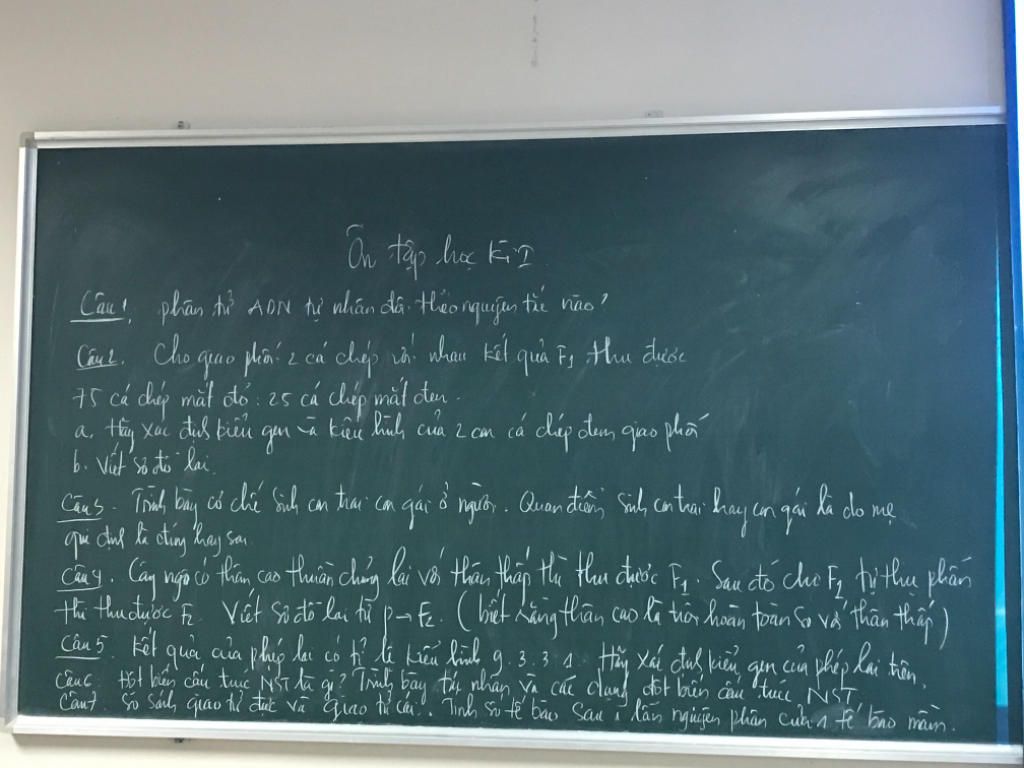 Ôn tập học Kì I
Câu 1, phân tử ADN tự nhân đôi theo nguyên tắc nào?
Câu 2. Cho giao phối 2 cá chép với nhau kết quả F1 thu được
75 cá chép mắt đỏ : 25 cá chép mắt đen.
a. Hãy xác định kiểu gen và kiểu hình của 2 con cá chép đem giao phối
b. Viết sơ đồ lai.
Câu 3. Trình bày cơ chế sinh con trai con gái ở người. Quan điểm sinh con trai hay con gái là do mẹ
qui định là đúng hay sai
Câu 4. Cây ngô có thân cao thuần chủng lai với thân thấp thì thu được F1. Sau đó cho F2 tự thụ phấn
thì thu được F2. Viết sơ đồ lai từ P → F2. (biết rằng thân cao là trội hoàn toàn so với thân thấp)
Câu 5 Kết quả của phép lai có tỉ lệ kiểu hình 9.3.3.1. Hãy xác định kiểu gen của phép lai trên.
Câu 6 Đột biến cấu trúc NST là gì? Trình bày tác nhân và các dạng đột biến cấu trúc NST
Câu 7 So sánh giao tử đực và giao tử cái. Tính số tế bào sau 1 lần nguyên phân của 1 tế bào mầm.